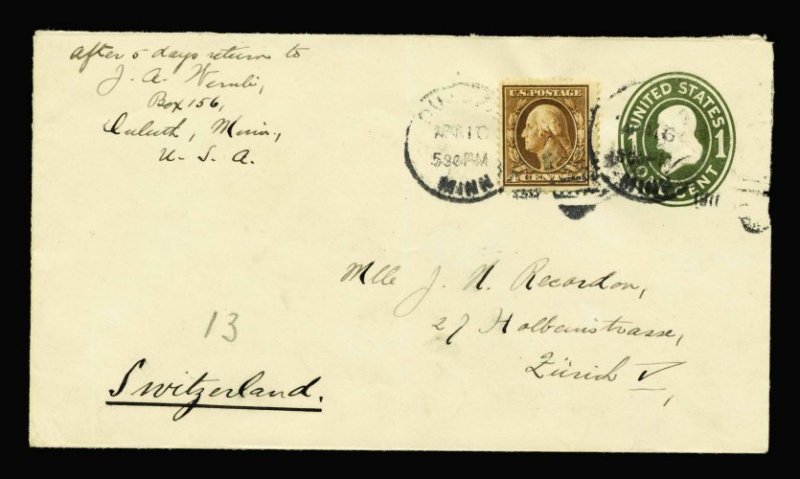 after 5 days return to
J. A. Wernli,
Box 156,
Duluth, Minn.,
U. S. A.
U.S. POSTAGE
4 CENTS 4
UNITED STATES
1 1
ONE CENT
APR 10
530 PM
MINN
1911
Mlle J. N. Recordon,
27 Holbeinstrasse,
Zürich V,
13
Switzerland.